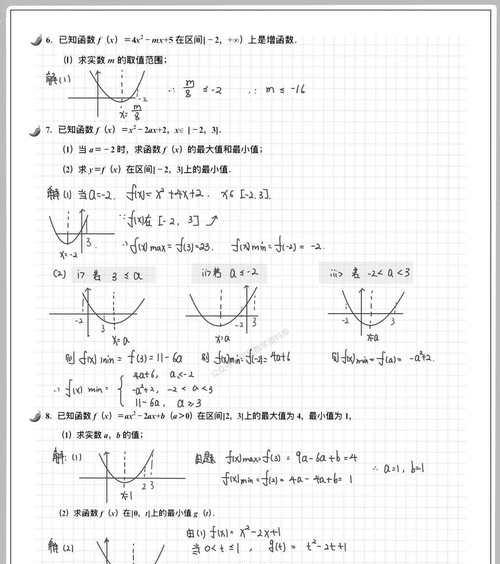 6. 已知函数 f（x）=4x²-mx+5 在区间[-2，+∞）上是增函数．
（1）求实数 m 的取值范围；
解(1) ∴ m/8 ≤ -2 ∴ m ≤ -16
-2
x= m/8
7. 已知函数 f（x）=x²-2ax+2，x∈[-2，3]．
（1）当 a=-2 时，求函数 f（x）的最大值和最小值；
（2）求 y=f（x）在区间[-2，3]上的最小值．
解 (1) 当a=-2, f(x)= x²+4x+2, x∈[-2,3].
∵ f(x)在 [-2, 3] ↗
3
∴ f(x) max = f(3)=23. f(x) min = f(-2) = -2.
x=-2
(2) i> 若 3 ≤ a ii> 若 a ≤ -2 iii> 若 -2 < a < 3
-2 3 -2 3 -2 3
x=a x=a x=a
则 f(x) min = f(3) = 11-6a 则 f(x)min = f(-2) = 4a+6 则 f(x)min = f(a) = -a²+2.
4a+6, a ≤ -2
∴ f(x) min = { -a²+2, -2 < a < 3
11-6a, a ≥ 3
8. 已知函数 f（x）=ax²-2ax+b（a＞0）在区间[2，3]上的最大值为 4，最小值为 1，
（1）求实数 a，b 的值；
解: (1) 由题 f(x)max = f(3) = 9a-6a+b=4
f(x)min = f(2) = 4a-4a+b = 1 ∴ a=1, b=1
2 3
x=1
（2）求函数 f（x）在[0，t]上的最小值 g（t）．
由(1) f(x)= x²-2x+1
解 (2) 当 0<t≤1, g(t) = t²-2t+1